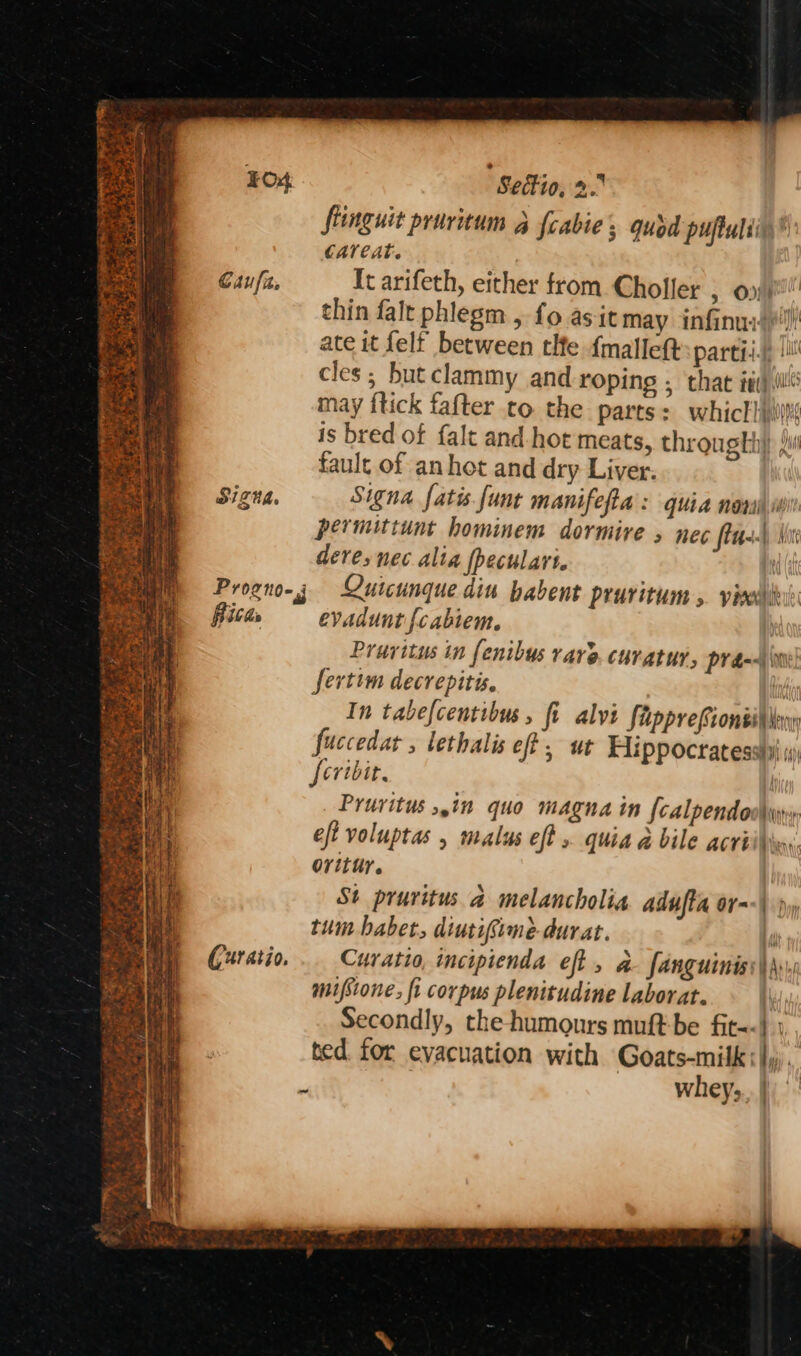 104 Sectio, 2.
ſtinguit pruritum à ſcabie; quòd puſtulis
careat.
Cauſa. It ariſeth, either from Choller, or
thin ſalt phlegm, ſo as it may inſinu-
ate it ſelf between the ſmalleſt parti-
cles; but clammy and roping, that it
may ſtick faſter to the parts: which
is bred of ſalt and hot meats, through
fault of an hot and dry Liver.
Signa. Signa ſatis ſunt manifeſta: quia non
permittunt hominem dormire, nec ſtu-
dere, nec alia ſpeculari.
Progno- Quicunque diu habent pruritum, vix
ſtica. evadunt ſcabiem.
Pruritus in ſenibus rarò curatur, præ-
ſertim decrepitis.
In tabeſcentibus, ſi alvi ſuppreſſioni
ſuccedat, lethalis eſt, ut Hippocrates
ſcribit.
Pruritus, in quo magna in ſcalpendo
eſt voluptas, malus eſt, quia à bile acri
oritur.
Si pruritus à melancholia aduſta or-
tum habet, diutiſſimè durat.
Curatio. Curatio, incipienda eſt, à ſanguinis
miſſione, ſi corpus plenitudine laborat.
Secondly, the humours muſt be fit-
ted for evacuation with Goats-milk
whey,